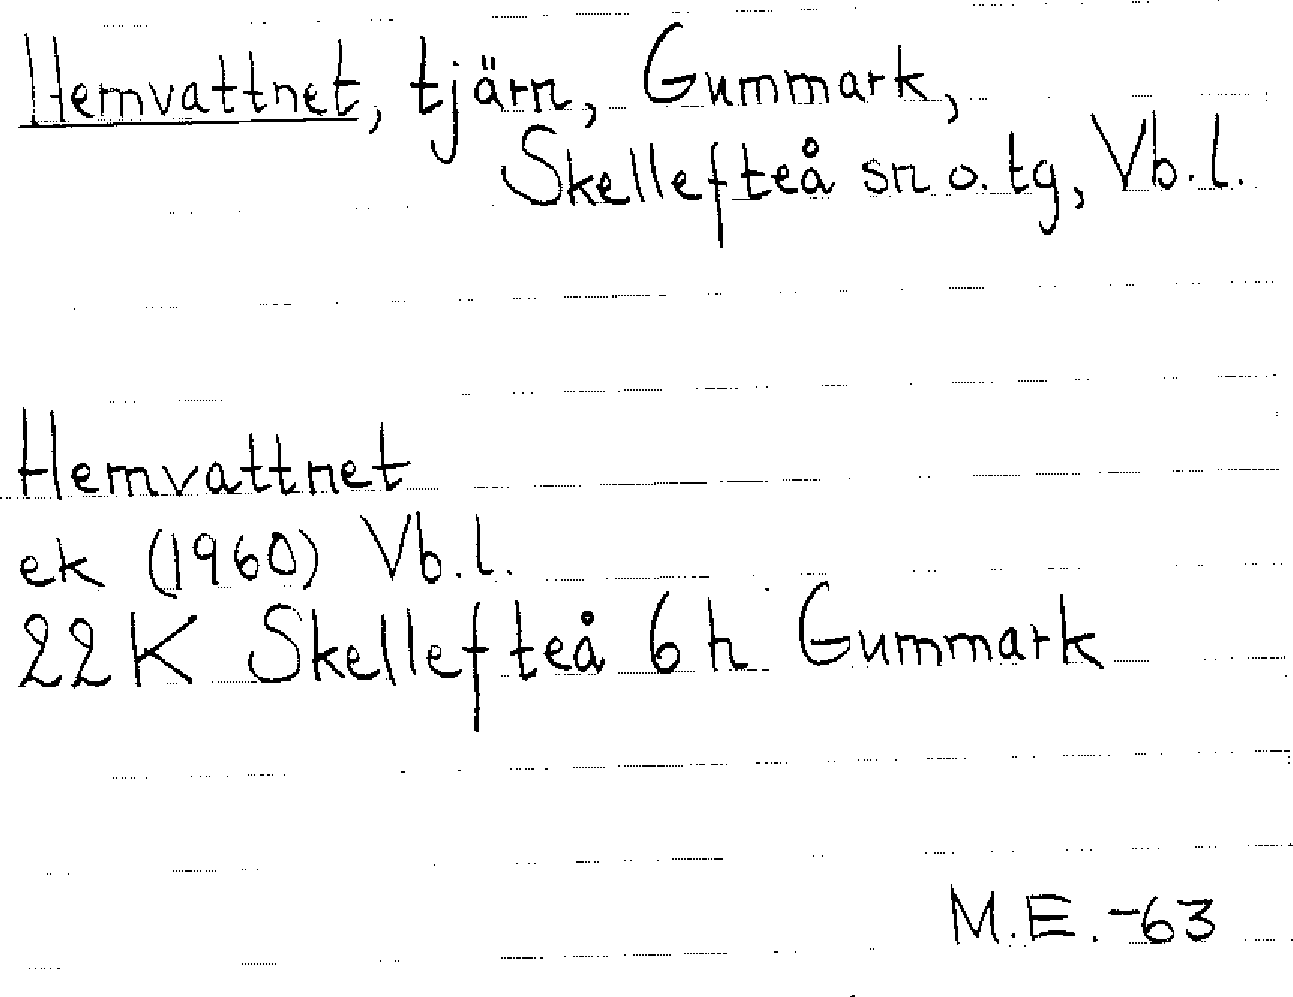 Hemvattnet, tjärn, Gummark,
Skellefteå sn o. tg, Vb. l.
Hemvattnet
ek (1960) Vb. l.
22K Skellefteå 6 h Gummark
M.E. -63